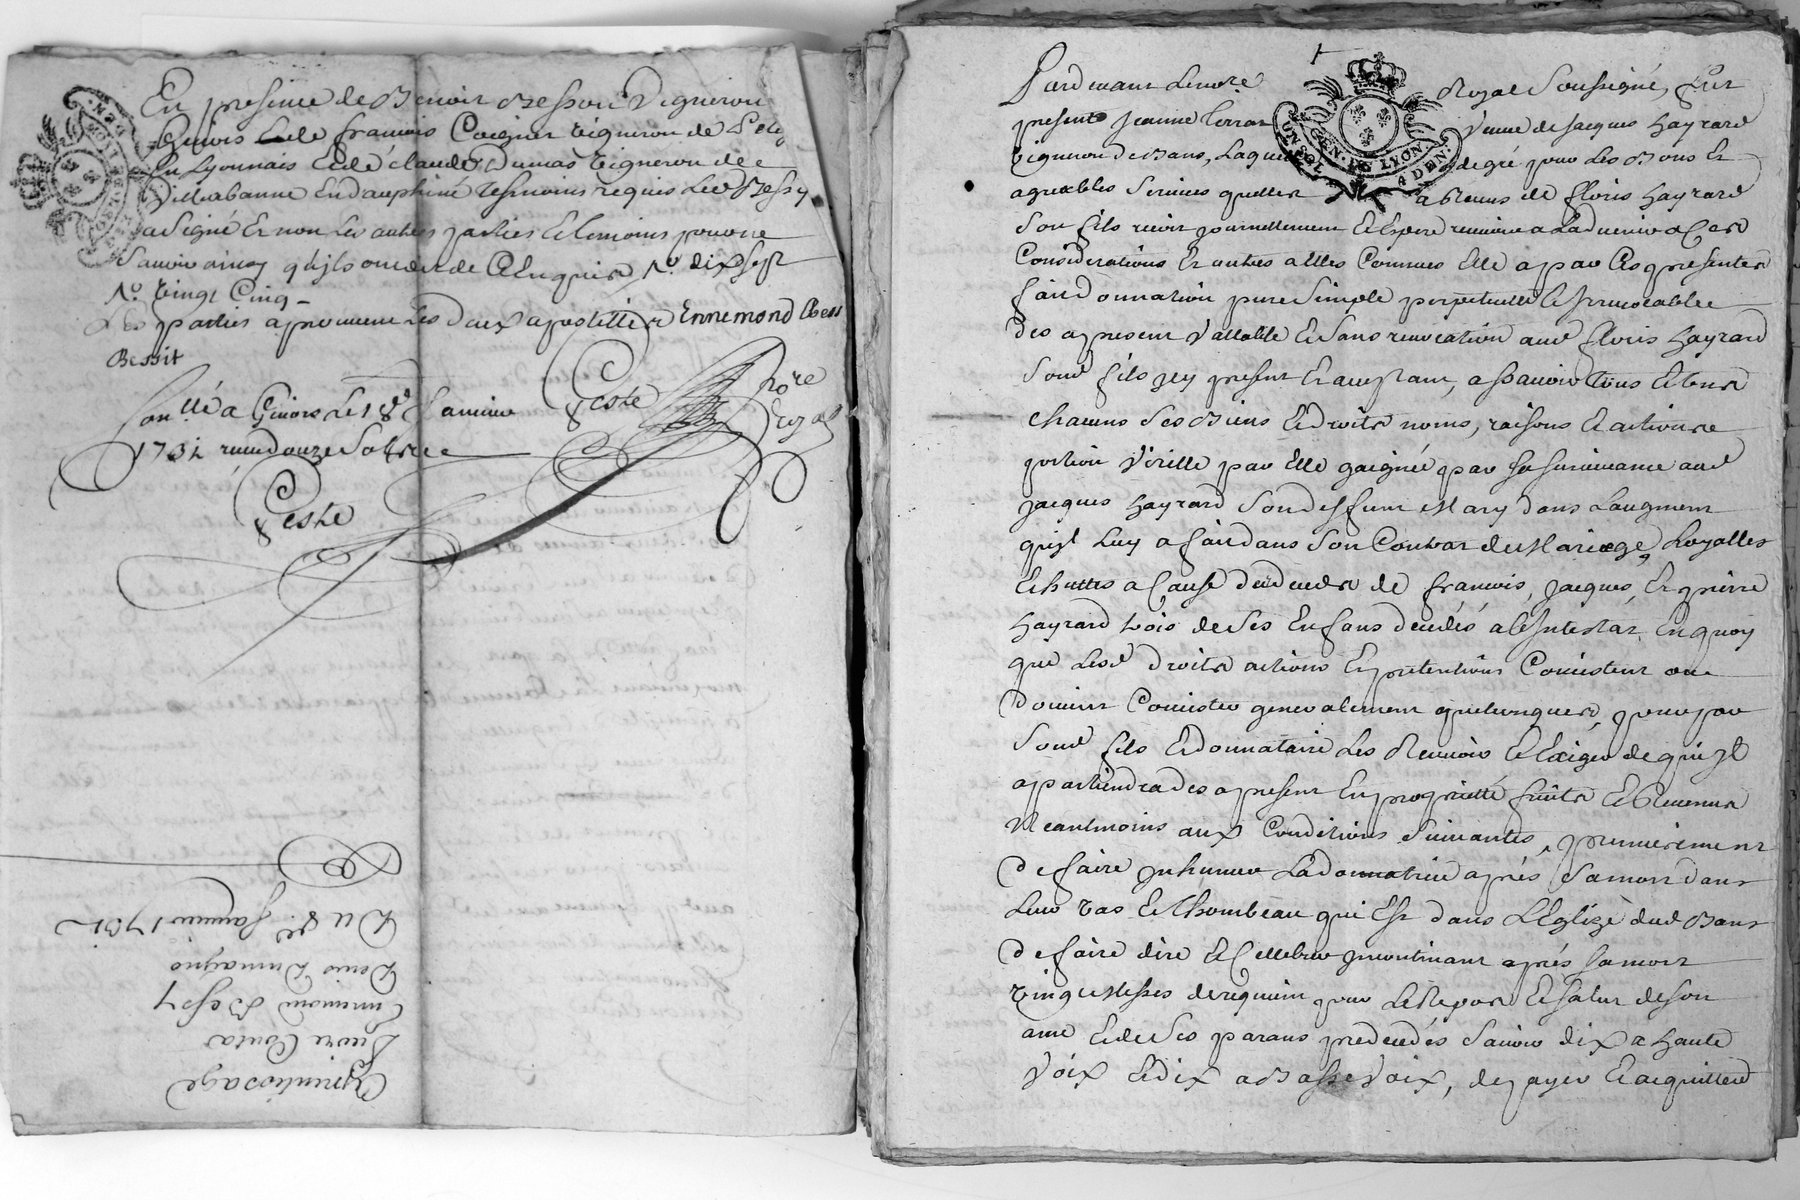 En presence de Benoit Besson Vigneron
de francois Coignet vigneron de
en Lyonnais et de claude Dumas vigneron de
Villeurbanne en dauphiné tesmoins requis led Bessy
a signé et non les autres parties et temoins pour ne
scavoir ainsy qu'ils ont de ce enquis Nº dix sept
Nº vingt Cinq
Les parties aprouvent Les deux apostilles Ennemond Bess
Bessit
Teste nore royal
Conllé a Givors Le 18e Janvier
1731 receu douze sols
Teste
Aprentissage
Ennemond Bessy
Denis Dumagno
Du 8e Janvier 1731
Pardevant Le nore Royal Soussigné, fut
presente Jeanne Terras Veuve de Jacques hayrard
Vigneron de Bans, Laquelle de gré pour Les Bons et
agreables Services quelle a Receus de floris hayrard
Son fils recoit journellement et Espere recevoir a Ladvenir a Ces
Considerations et autres a Elles Connues Elle a par Ces presentes
fait donnation pure Simple perpetuelle et Irrevocable
des a present Vallable et Sans revocation aud floris hayrard
Sond fils icy present et acceptant, a scavoir tous et un
chacuns Ses Biens et droits noms, raisons et actions
portion Virille par Elle gaignée par sa Survivance aud
Jacques hayrard Son deffunt Mary dans Laugment
quil Luy a fait dans Son Contrat de Mariage,
Echuttes a Cause du deceds de francois, Jacques, et pierre
hayrard trois de Ses Enfans decedés ab Intestat, En quoy
que Lesd droits actions et pretentions Consistent ou
doivent Consister generalement quelconques, pour par
Sond fils et donnataire Les Recevoir et Exiger de qui Il
apartiendra des a present En proprietté fruits et Revenus
Neantmoins aux Conditions Suivantes, premierement
de faire Inhumer Ladonnatrice après Sa mort dans
Leur Vas et thombeau qui Est dans L'Eglize dud Bans
de faire dire et Cellebrer Incontinant après Sa mort
vingt Messes de requiem pour Le Repos et salut de Son
ame et de Ses parans predecedés Scavoir dix a haute
Voix et dix a Basse Voix, de payer et acquitter
UN SOL GEN. DE LYON 4 DEN.